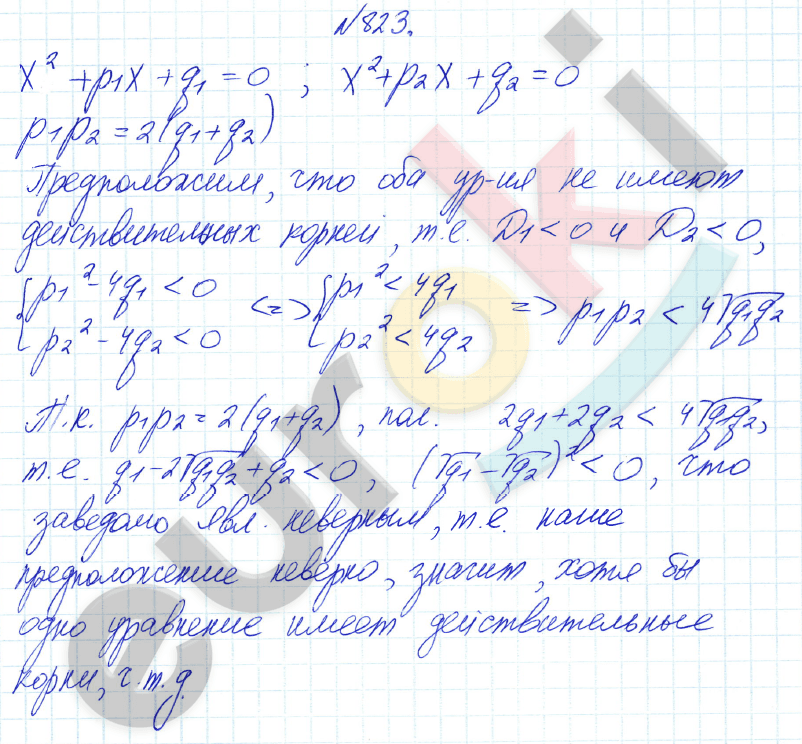 №823.
x² + p₁x + q₁ = 0 ; x² + p₂x + q₂ = 0
p₁p₂ = 2(q₁+q₂)
Предположим, что оба ур-ия не имеют
действительных корней, т.е. D₁<0 и D₂<0,
{p₁²-4q₁<0 <=> {p₁²<4q₁ => p₁p₂ < 4√q₁q₂
{p₂²-4q₂<0 {p₂²<4q₂
Т.к. p₁p₂=2(q₁+q₂), пол. 2q₁+2q₂ < 4√q₁q₂,
т.е. q₁-2√q₁q₂+q₂<0, (√q₁-√q₂)²<0, что
заведомо явл. неверным, т.е. наше
предположение неверно, значит, хотя бы
одно уравнение имеет действительные
корни, ч.т.д.
euroki